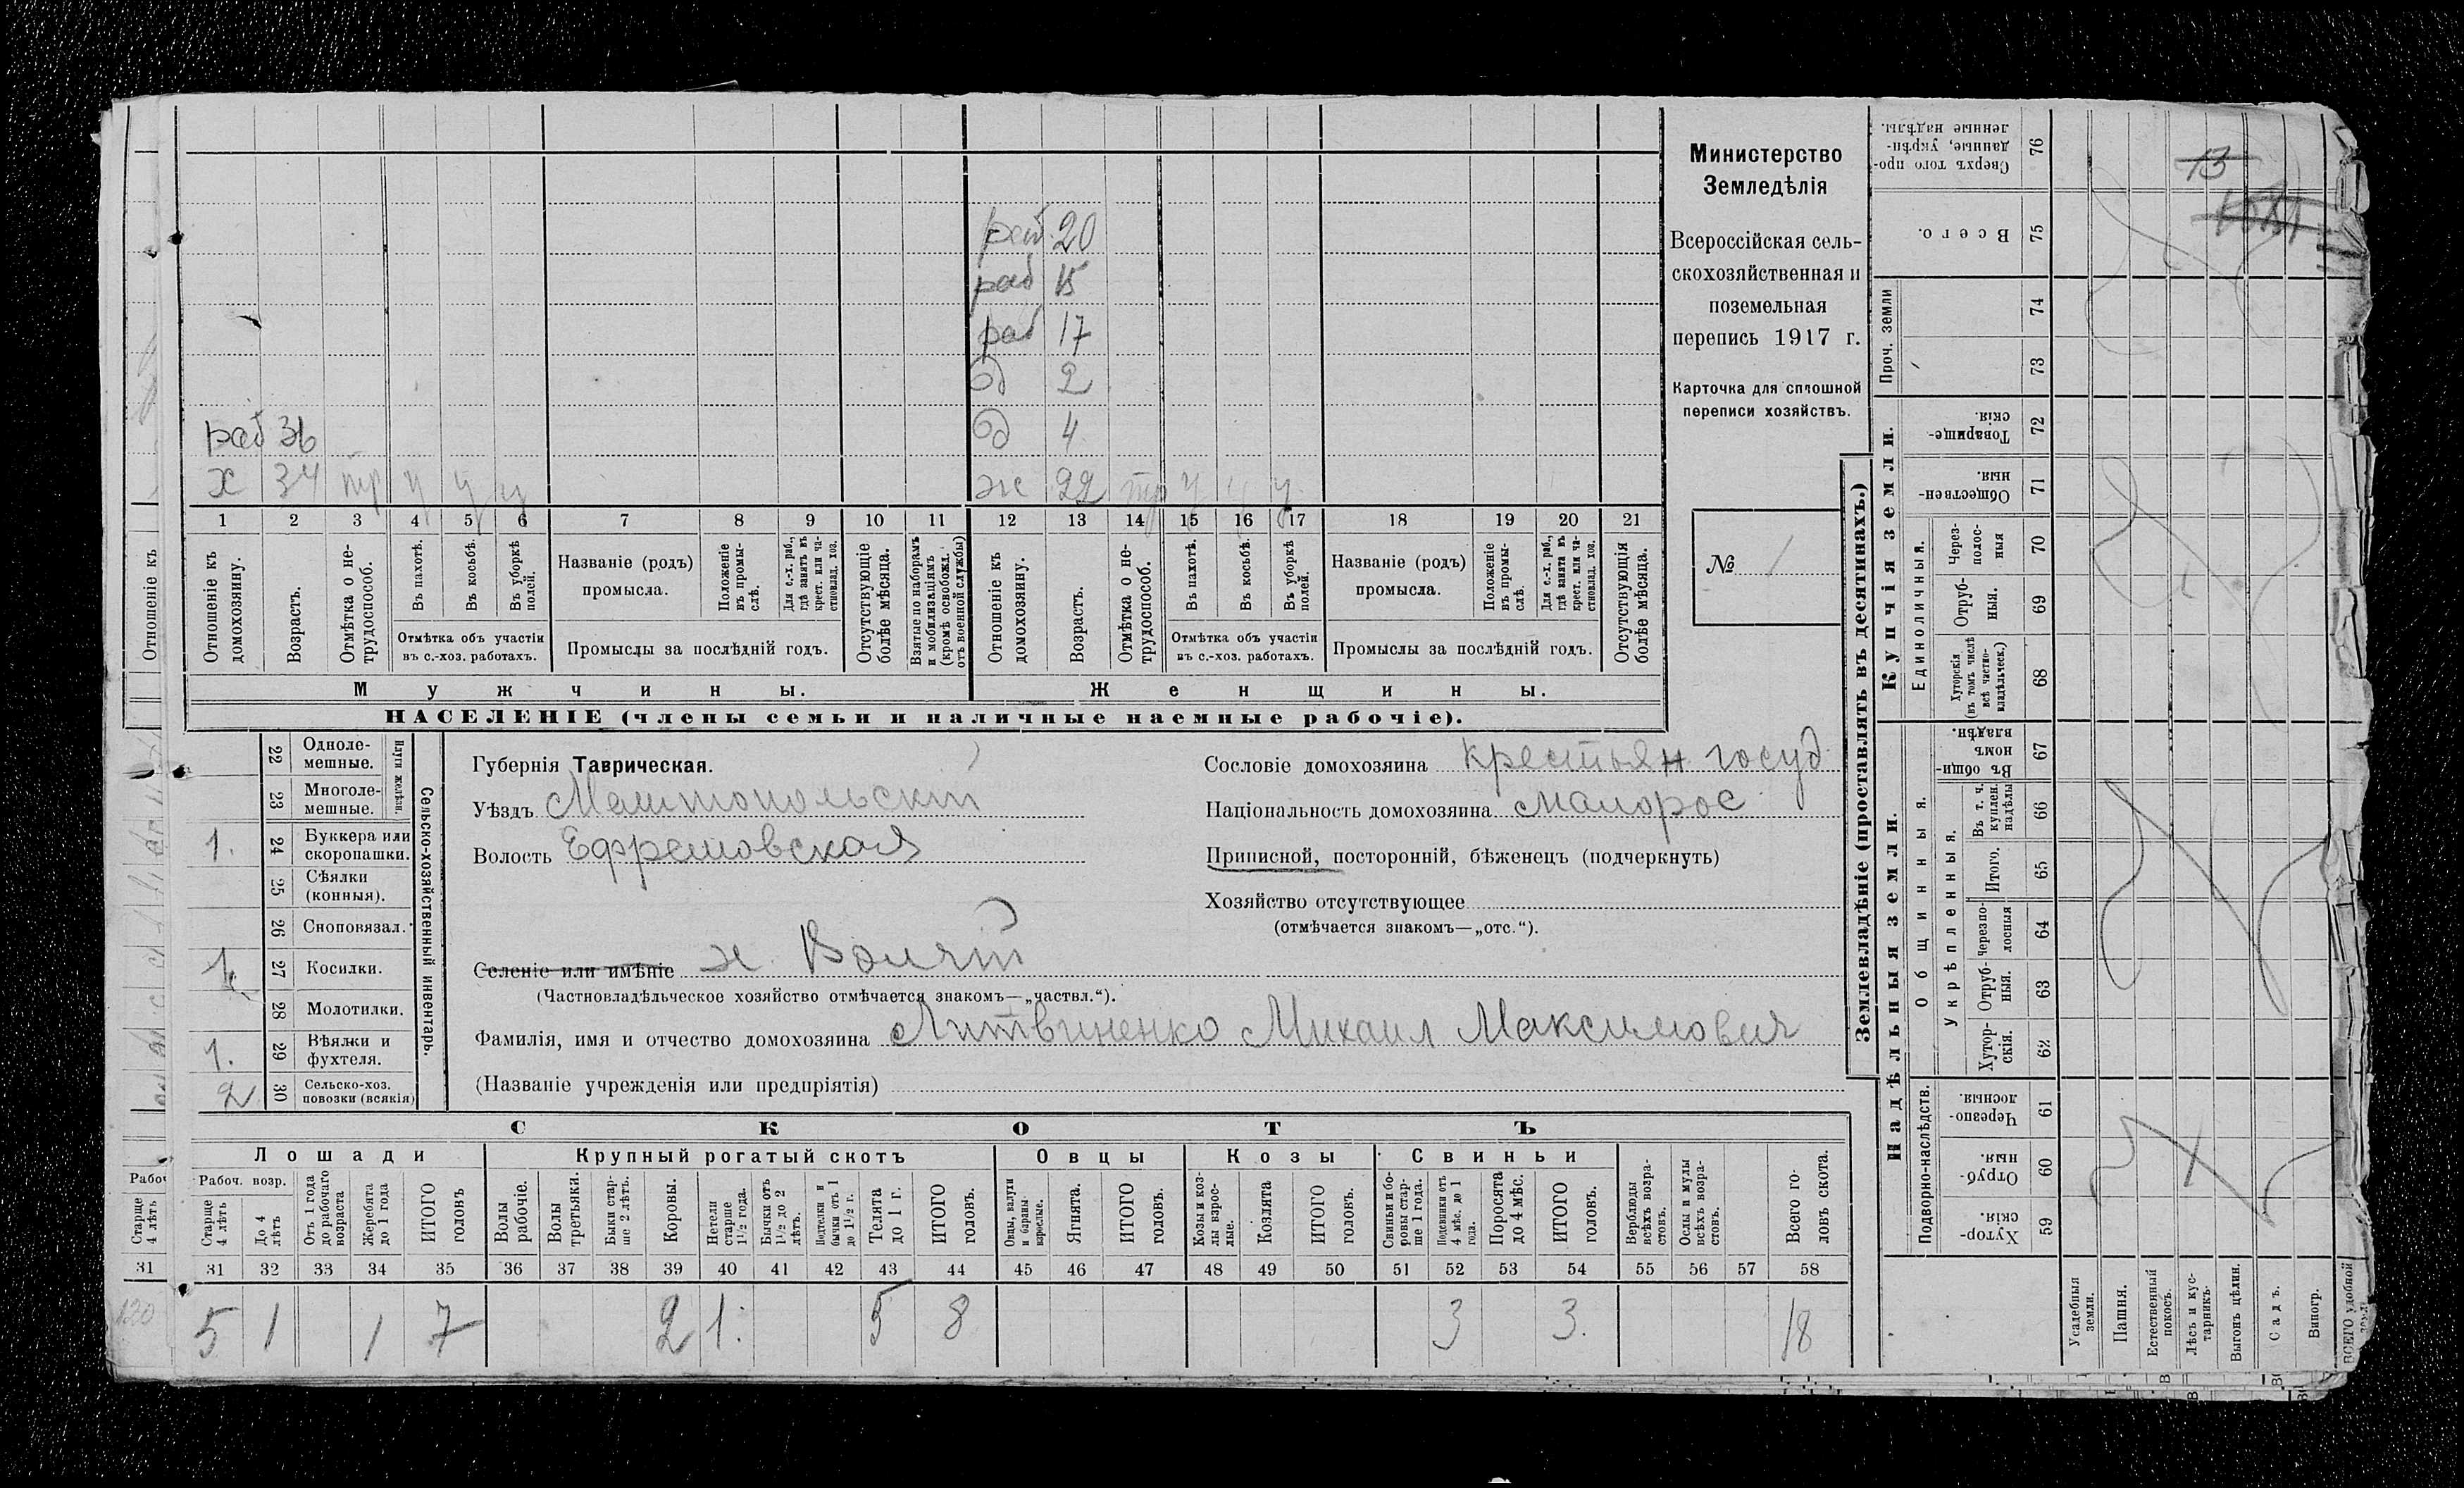 раб 20
раб 15
раб 17
д 2
раб 36 д 4
х 34 тр у у у ж 22 тр у у у
1 2 3 4 5 6 7 8 9 10 11 12 13 14 15 16 17 18 19 20 21
Отношеніе къ домохозяину.
Возрастъ.
Отмѣтка о не-трудоспособ.
Въ пахотѣ.
Въ косьбѣ.
Въ уборкѣ полей.
Отмѣтка объ участіи въ с.-хоз. работахъ.
Названіе (родъ) промысла.
Положеніе въ промы-слѣ.
Для с.-х. раб., гдѣ занятъ въ крест. или ча-стновлад. хоз.
Промыслы за послѣдній годъ.
Отсутствующіе болѣе мѣсяца.
Взятые по наборамъ и мобилизаціямъ (кромѣ освобожд. отъ военной службы)
Отношеніе къ домохозяину.
Возрастъ.
Отмѣтка о не-трудоспособ.
Въ пахотѣ.
Въ косьбѣ.
Въ уборкѣ полей.
Отмѣтка объ участіи въ с.-хоз. работахъ.
Названіе (родъ) промысла.
Положеніе въ промы-слѣ.
Для с.-х. раб., гдѣ занята въ крест. или ча-стновлад. хоз.
Промыслы за послѣдній годъ.
Отсутствующія болѣе мѣсяца.
Мужчины. Женщины.
НАСЕЛЕНІЕ (члены семьи и наличные наемные рабочіе).
Министерство
Земледѣлія
Всероссійская сель-
скохозяйственная и
поземельная
перепись 1917 г.
Карточка для сплошной
переписи хозяйствъ.
№ 1
22 Одноле-мешные.
23 Многоле-мешные.
1. 24 Буккера или скоропашки.
25 Сѣялки (конныя).
26 Сноповязал.
27 Косилки.
28 Молотилки.
1. 29 Вѣялки и фухтеля.
2 30 Сельско-хоз. повозки (всякія)
Сельско-хозяйственный инвентарь.
Губернія Таврическая.
Уѣздъ Мелитопольскій
Волость Ефремовская
Селеніе или имѣніе х.
(Частновладѣльческое хозяйство отмѣчается знакомъ—„частвл.“).
Фамилія, имя и отчество домохозяина Литвиненко Михаил Максимович
(Названіе учрежденія или предпріятія)
Сословіе домохозяина крестьян госуд
Національность домохозяина малорос
Приписной, посторонній, бѣженецъ (подчеркнуть)
Хозяйство отсутствующее
(отмѣчается знакомъ—„отс.“).
СКОТЪ
Лошади Крупный рогатый скотъ Овцы Козы Свиньи
Рабоч. возр.
Старше 4 лѣтъ
До 4 лѣтъ
Отъ 1 года до рабочаго возраста
Жеребята до 1 года
ИТОГО головъ
Волы рабочіе.
Волы третьяки.
Быки стар-ше 2 лѣтъ.
Коровы.
Нетели старше 1½ года.
Бычки отъ 1½ до 2 лѣтъ.
Подтелки и бычки отъ 1 до 1½ г.
Телята до 1 г.
ИТОГО головъ.
Овцы, валухи и бараны взрослые.
Ягнята.
ИТОГО головъ.
Козы и коз-лы взрос-лые.
Козлята
ИТОГО головъ.
Свиньи и бо-ровы стар-ше 1 года.
Подсвинки отъ 4 мѣс. до 1 года.
Поросята до 4 мѣс.
ИТОГО головъ.
Верблюды всѣхъ возра-стовъ.
Ослы и мулы всѣхъ возра-стовъ.
Всего го-ловъ скота.
31 32 33 34 35 36 37 38 39 40 41 42 43 44 45 46 47 48 49 50 51 52 53 54 55 56 57 58
5 1 1 7 2 1. 5 8 3 3. 18
Землевладѣніе (проставлять въ десятинахъ.)
Надѣльныя земли. Купчія земли. Проч. земли
Подворно-наслѣдств. Общинныя. Укрѣпленныя. Единоличныя.
59 Хутор-скія.
60 Отруб-ныя.
61 Черезпо-лосныя.
62 Хутор-скія.
63 Отруб-ныя.
64 Черезпо-лосныя
65 Итого.
66 Въ т. ч. куплен. надѣлы
67 Въ общи-номъ владѣн.
68 Хуторскія (въ томъ числѣ всѣ частно-владѣльческ.)
69 Отруб-ныя.
70 Через-полос-ныя
71 Обществен-ныя.
72 Товарище-скія.
73
74
75 Всего.
76 Сверхъ того про-данные, укрѣп-ленные надѣлы.
Усадебныя земли.
Пашня.
Естественный покосъ.
Лѣсъ и кус-тарникъ.
Выгонъ цѣлин.
Садъ.
Виногр.
ВСЕГО удобной
13
Отношеніе къ
Старше 4 лѣтъ
31
120